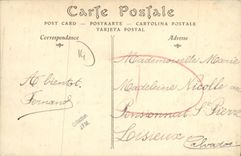 Carte Postale
POST CARD — POSTKARTE — CARTOLINA POSTALE
TARJETA POSTAL
Correspondance
Adresse
A bientôt
Fernand
Mademoiselle Marie
Madeleine Nicolle
Pensionnat St Pierre
Lisieux
Calvados